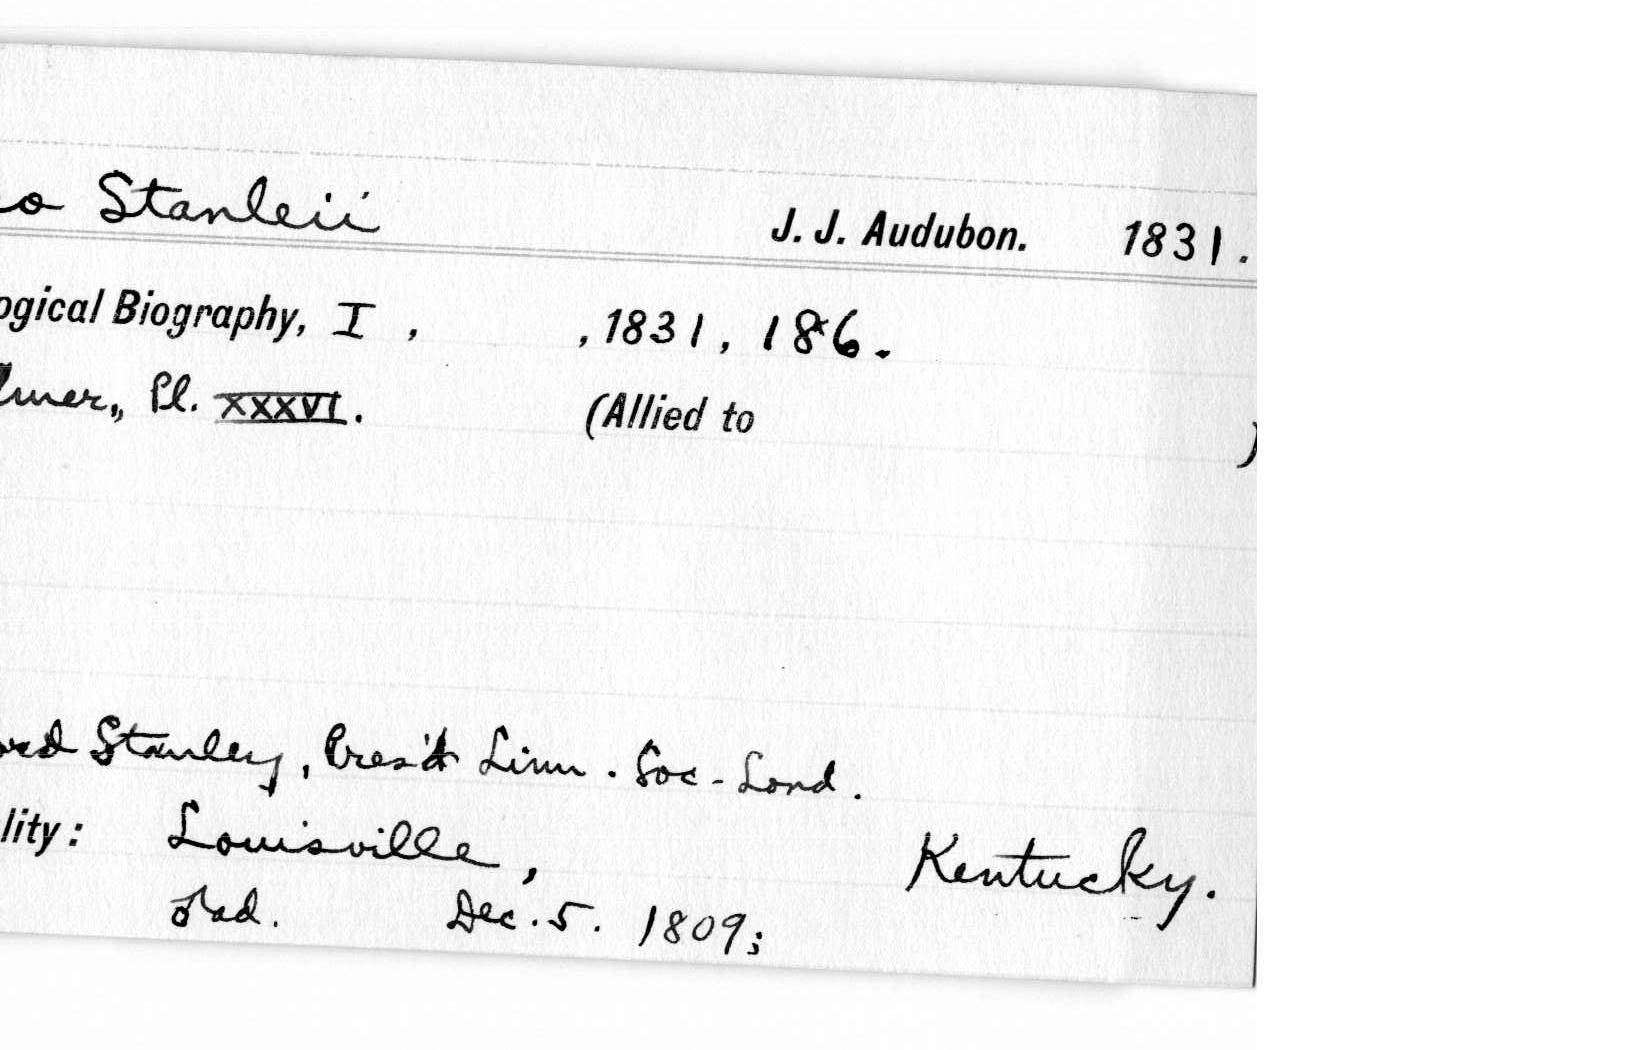 o Stanleii J. J. Audubon. 1831.
ogical Biography, I , , 1831, 186.
Pl. XXXVI. (Allied to )
Stanley, Pres't Linn. Soc - Lond.
lity: Louisville, Kentucky.
♂ad. Dec. 5. 1809;